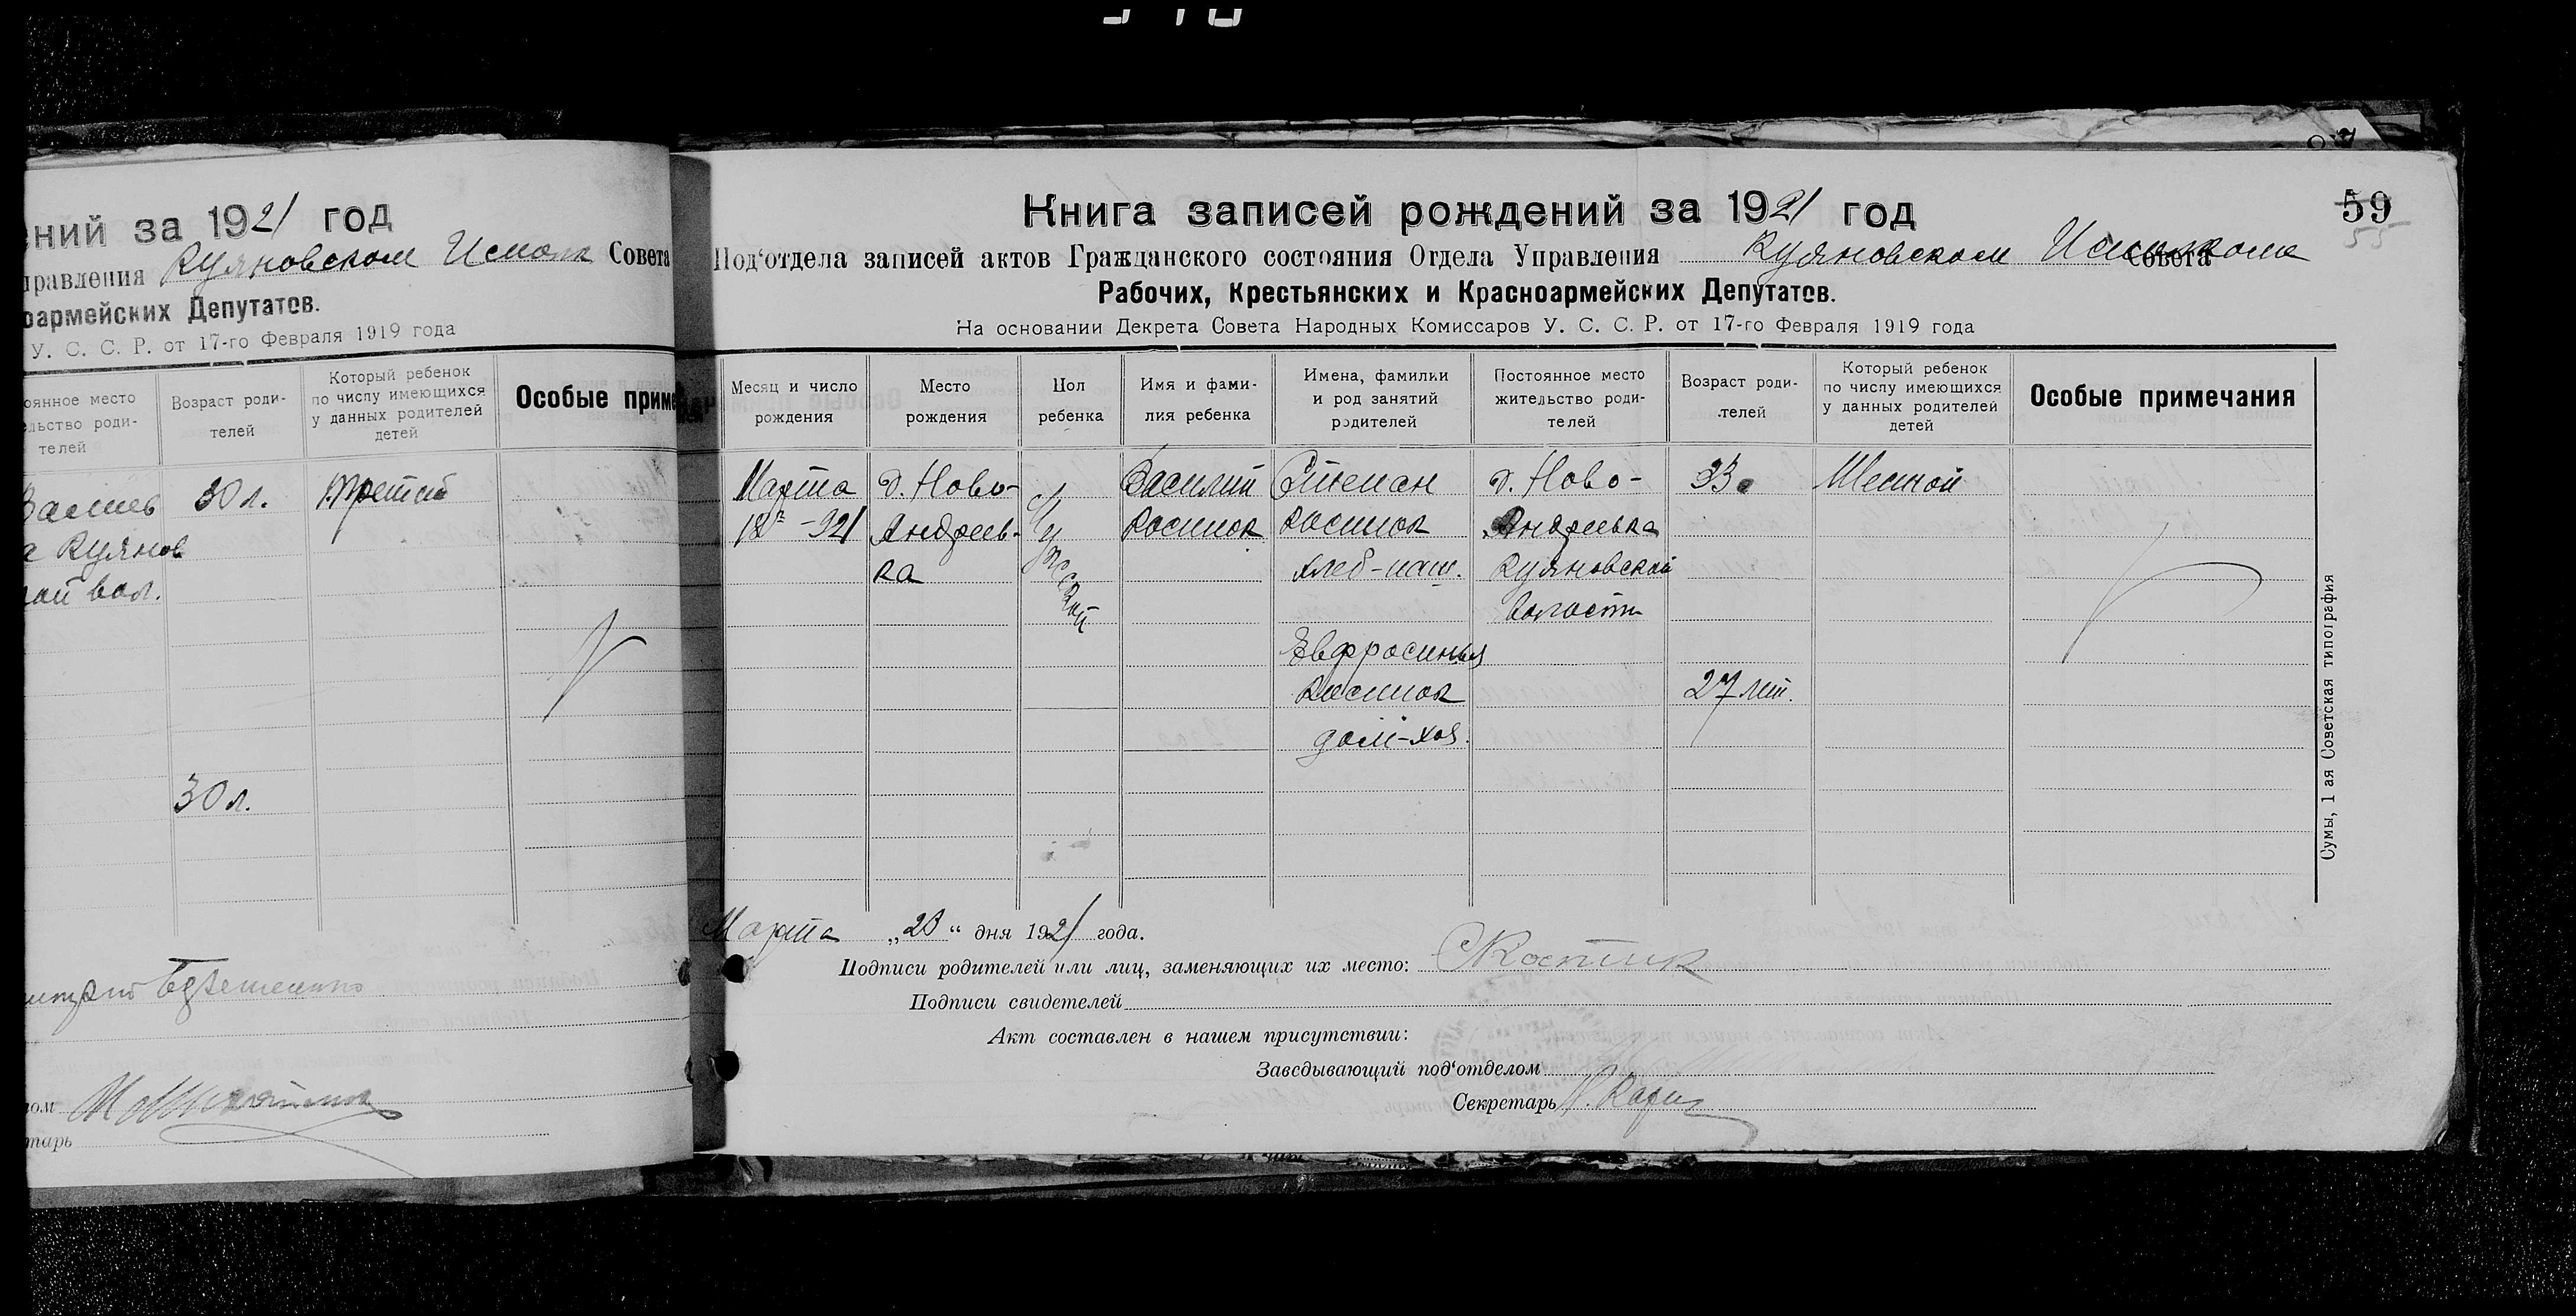 ений за 1921 год
правления Куяновском Исполк Совета
оармейских Депутатов.
У. С. С. Р. от 17-го Февраля 1919 года
оянное место
льство роди-
телей
Возраст роди-
телей
Который ребенок
по числу имеющихся
у данных родителей
детей
Особые приме
30 л.
третий
а Куянов
вол.
30 л.
Книга записей рождений за 1921 год
59
55
Под'отдела записей актов Гражданского состояния Отдела Управления Куяновском Исполкоме Совета
Рабочих, Крестьянских и Красноармейских Депутатов.
На основании Декрета Совета Народных Комиссаров У. С. С. Р. от 17-го Февраля 1919 года
Месяц и число
рождения
Место
рождения
Пол
ребенка
Имя и фами-
лия ребенка
Имена, фамилии
и род занятий
родителей
Постоянное место
жительство роди-
телей
Возраст роди-
телей
Который ребенок
по числу имеющихся
у данных родителей
детей
Особые примечания
Марта
18го - 921
д. Ново-
Андреев-
ка
Мужской
Василий
Костюк
Степан
Костюк
хлеб-паш.
Евфросинья
Костюк
дом-хоз.
д. Ново-
Андреевка
Куяновской
волости
33
27 лет.
Шестой
Марта „23“ дня 1921 года.
Подписи родителей или лиц, заменяющих их место: СКостик
Подписи свидетелей
Акт составлен в нашем присутствии:
Заведывающий под'отделом
Секретарь
Сумы, 1 ая Советская типография